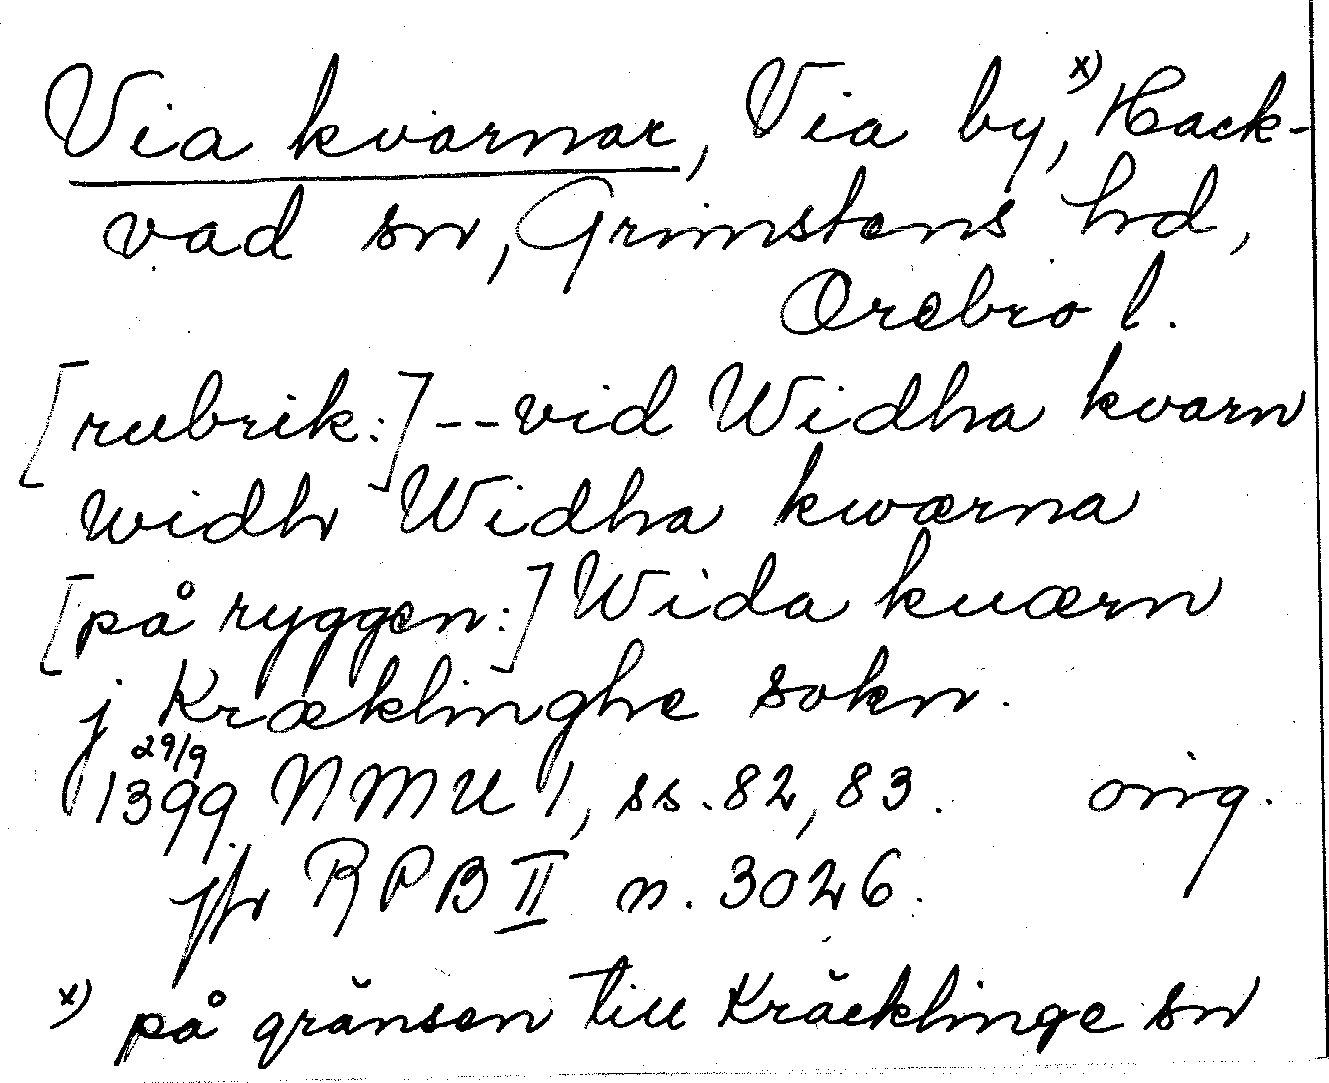 Via kvarnar, Via by,ˣ⁾ Hack-
vad sn, Grimstens hd,
Örebro l.
[rubrik:] -- vid Widha kvarn
widh Widha kwærna
[på ryggen:] Wida kuærn
j Kræklinghe sokn.
29/9
1399 NMU 1, ss. 82, 83. orig.
jfr RPB II n. 3026.
x) på gränsen till Kräcklinge sn